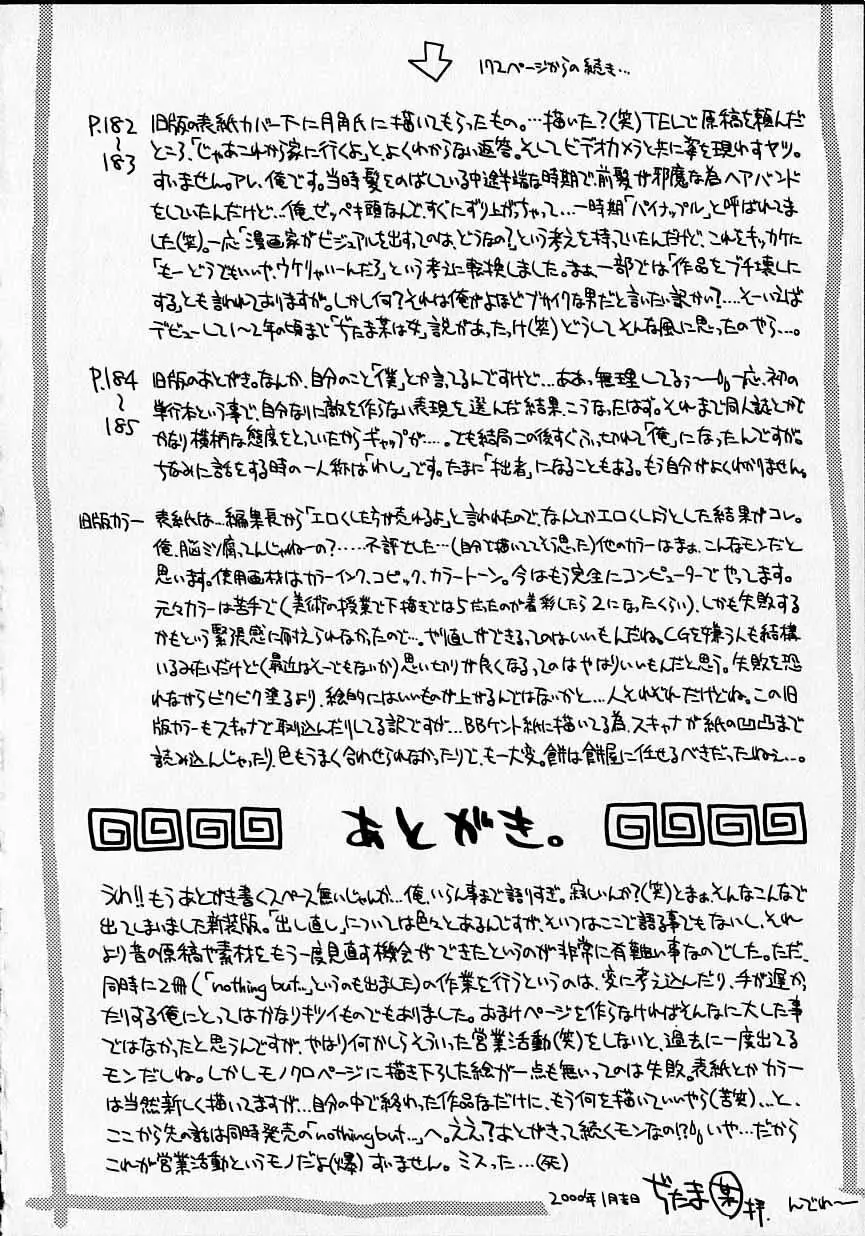 172ページからの続き…
P.182〜183
旧版の表紙カバー下に月角氏に描いてもらったもの。…描いた?(笑)TELで原稿を頼んだ
ところ、「じゃあこれから家に行くよ」と、よくわからない返答。そしてビデオカメラと共に姿を現わすヤツ。
すいません。アレ、俺です。当時髪をのばしている中途半端な時期で前髪が邪魔な為ヘアバンド
をしていたんだけど…俺、ゼッペキ頭なんで、すぐにずり上がっちゃって…一時期「パイナップル」と呼ばれてま
した(笑)。一応「漫画家がビジュアルを出すってのは、どうなの?」という考えを持っていたんだけど、これをキッカケに
「もーどうでもいいや、ウケりゃいーんだろ」という考えに転換しました。まぁ、一部では「作品をブチ壊しに
する」とも言われておりますが。しかし何?それは俺がよほどブサイクな男だと言いたい訳かい?…。そーいえば
デビューして1〜2年の頃まで「ぢたま某は女」説があったっけ(笑)どうしてそんな風に思ったのやら…。
P.184〜185
旧版のあとがき。なんか、自分のこと「僕」とか言ってるんですけど…ああっ無理してるぅ〜一応、初の
単行本という事で、自分なりに敵を作らない表現を選んだ結果、こうなったはず。それまで同人誌とかで
かなり横柄な態度をとっていたからギャップが…。でも結局この後すぐふっきれて「俺」になったんですが。
ちなみに話をする時の一人称は「わし」です。たまに「拙者」になることもある。もう自分がよくわかりません。
旧版カラー
表紙は…編集長から「エロくした方が売れるよ」と言われたので、なんとかエロくしようとした結果がコレ。
俺、脳ミソ腐ってんじゃねーの?……不評でした…(自分で描いててそう思った)他のカラーはまぁ、こんなモンだと
思います。使用画材はカラーインク、コピック、カラートーン。今はもう完全にコンピューターでやってます。
元々カラーは苦手で(美術の授業で下描きでは5だったのが着彩したら2になったくらい)、しかも失敗する
かもという緊張感に耐えられなかったので…。やり直しができるってのはいいもんだね。CGを嫌う人も結構
いるみたいだけど(最近はそーでもないか)思い切りが良くなるってのはやはりいいもんだと思う。失敗を恐
れながらビクビク塗るより、絵的にはいいものが上がるんではないかと…人それぞれだけどね。この旧
版カラーもスキャナで取り込んだりしてる訳ですが…BBケント紙に描いてる為、スキャナが紙の凹凸まで
読み込んじゃったり、色もうまく合わせられなかったりで、もー大変。餅は餅屋に任せるべきだったねぇ…。
あとがき。
うわ!!もうあとがき書くスペース無いじゃんか…俺、いらん事まで語りすぎ。寂しいんか?(笑)とまぁ、そんなこんなで
出てしまいました新装版。「出し直し」については色々とあるんですが、そいつはここで語る事でもないし、それ
より昔の原稿や素材をもう一度見直す機会ができたというのが非常に有難い事なのでした。ただ、
同時に2冊(「nothing but…」というのも出ました)の作業を行うというのは、変に考え込んだり、手が遅かっ
たりする俺にとってはかなりキツイものでもありました。おまけページを作らなければそんなに大した事
ではなかったと思うんですが、やはり何かしらそういった営業活動(笑)をしないと、過去に一度出てる
モンだしね。しかしモノクロページに描き下ろした絵が一点も無いってのは失敗。表紙とかカラー
は当然新しく描いてますが…自分の中で終わった作品なだけに、もう何を描いていいやら(苦笑)…と、
ここから先の話は同時発売の「nothing but…」へ。ええ?あとがきって続くモンなの!?いや…だから
これが営業活動というモノだよ(爆)すいません。ミスった…(死)
2000年1月吉日 ぢたま某 拝. んでわ〜